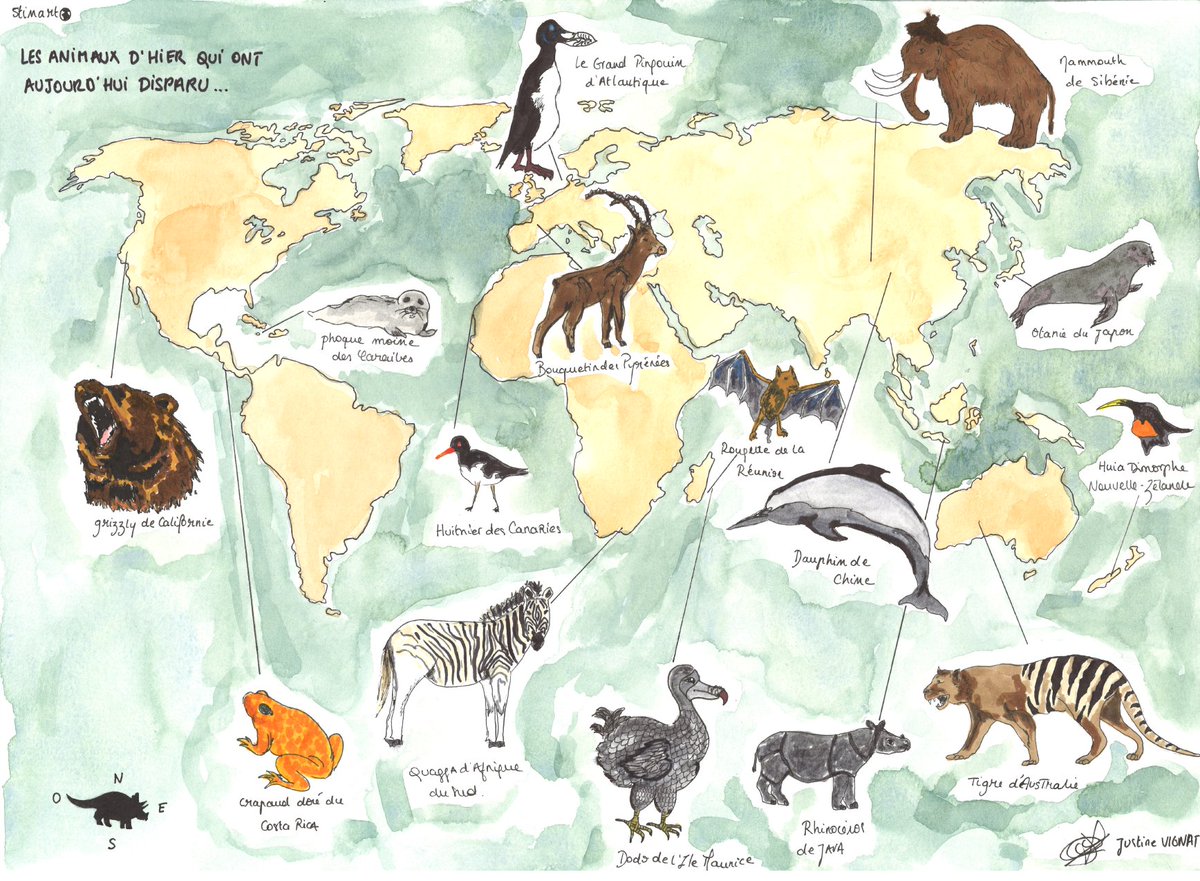 Stimart
LES ANIMAUX D'HIER QUI ONT
AUJOURD'HUI DISPARU...
Le Grand Pingouin
d'Atlantique
Mammouth
de Sibérie
phoque moine
des Caraïbes
Bouquetin des Pyrénées
Otarie du Japon
grizzly de Californie
Huitrier des Canaries
Roupette de la
Réunion
Huia Dimorphe
Nouvelle-Zélande
Dauphin de
Chine
crapaud doré du
Costa Rica
Quagga d'Afrique
du Sud.
Dodo de l'Ile Maurice
Rhinocéros
de JAVA
Tigre d'Australie
N
O
E
S
Justine VIGNAT